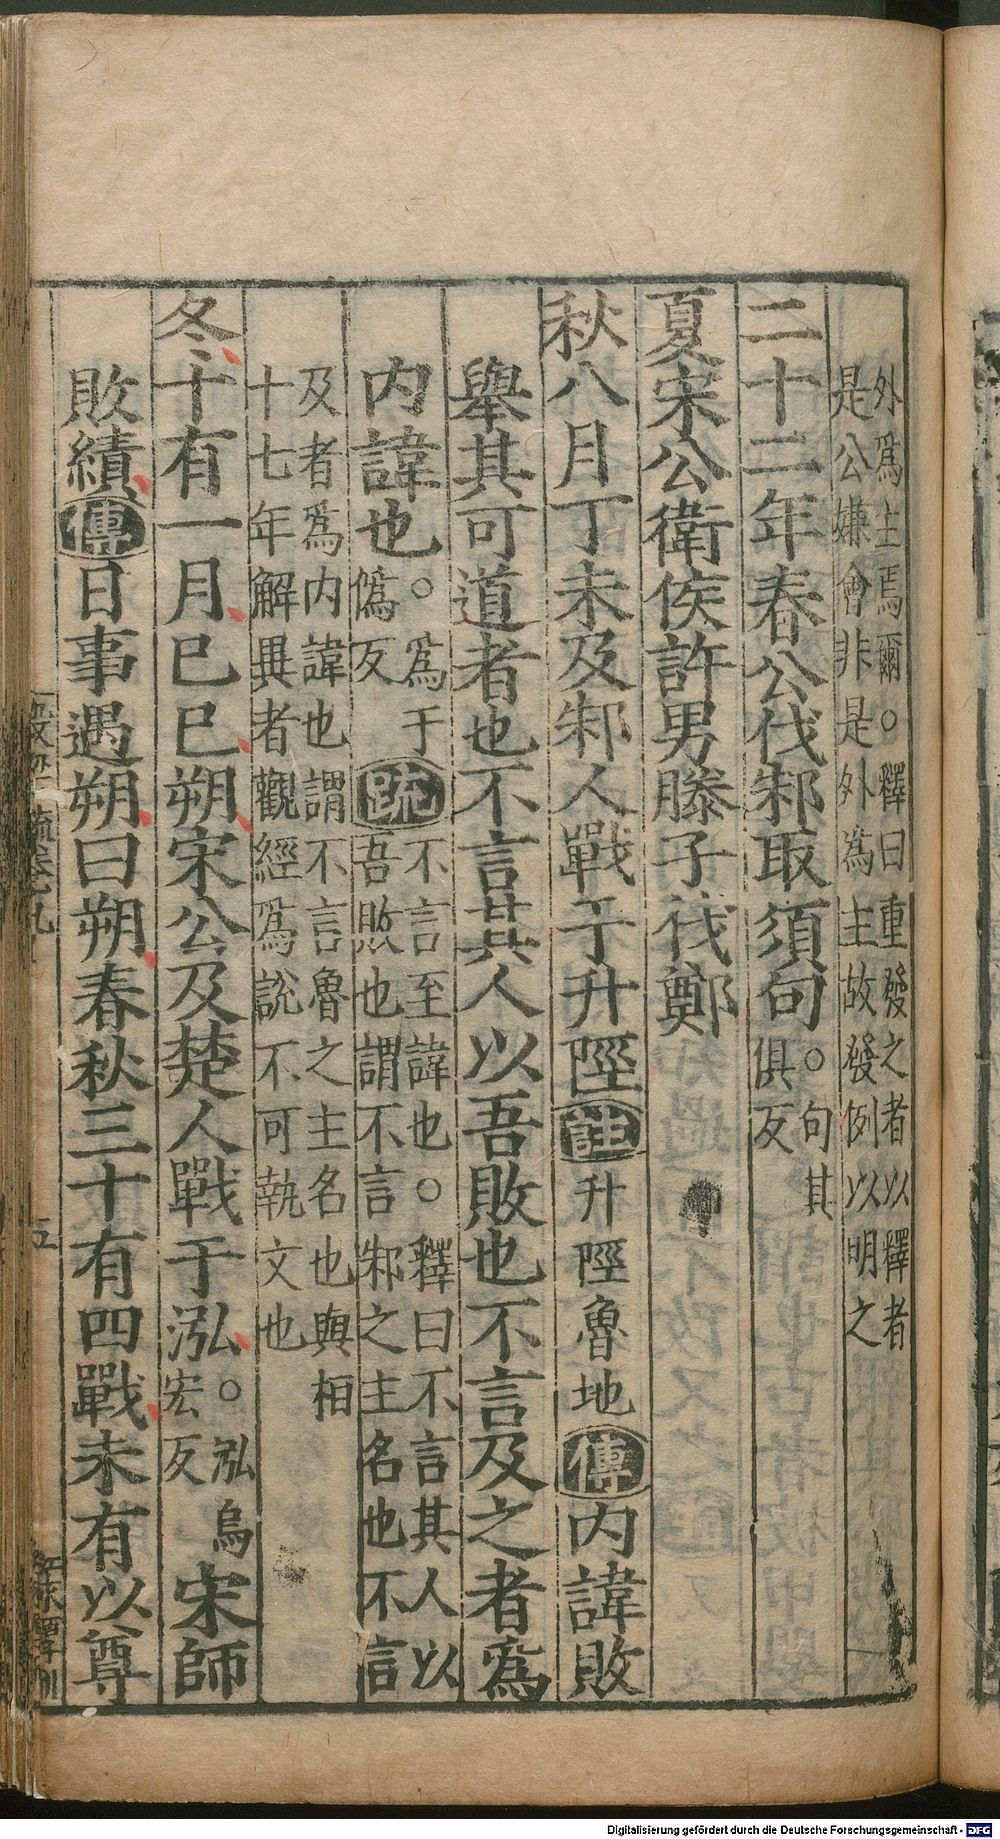 外爲主焉爾○釋曰重發之者以釋者
是公嫌會非是外為主故發例以明之
二十二年春公伐邾取須句○句其
俱反
夏宋公衛侯許男滕子伐鄭
秋八月丁未及邾人戰于升陘註升陘魯地傳內諱敗
舉其可道者也不言其人以吾敗也不言及之者爲
內諱也○爲于
僞反
疏不言至諱也○釋曰不言其人以
吾敗也謂不言邾之主名也不言
及者爲内諱也謂不言魯之主名也與桓
十七年解異者觀經爲說不可執文也
冬十有一月己巳朔宋公及楚人戰于泓○泓烏
宏反
宋師
敗績傳日事遇朔曰朔春秋三十有四戰未有以尊
五
Digitalisierung gefördert durch die Deutsche Forschungsgemeinschaft - DFG